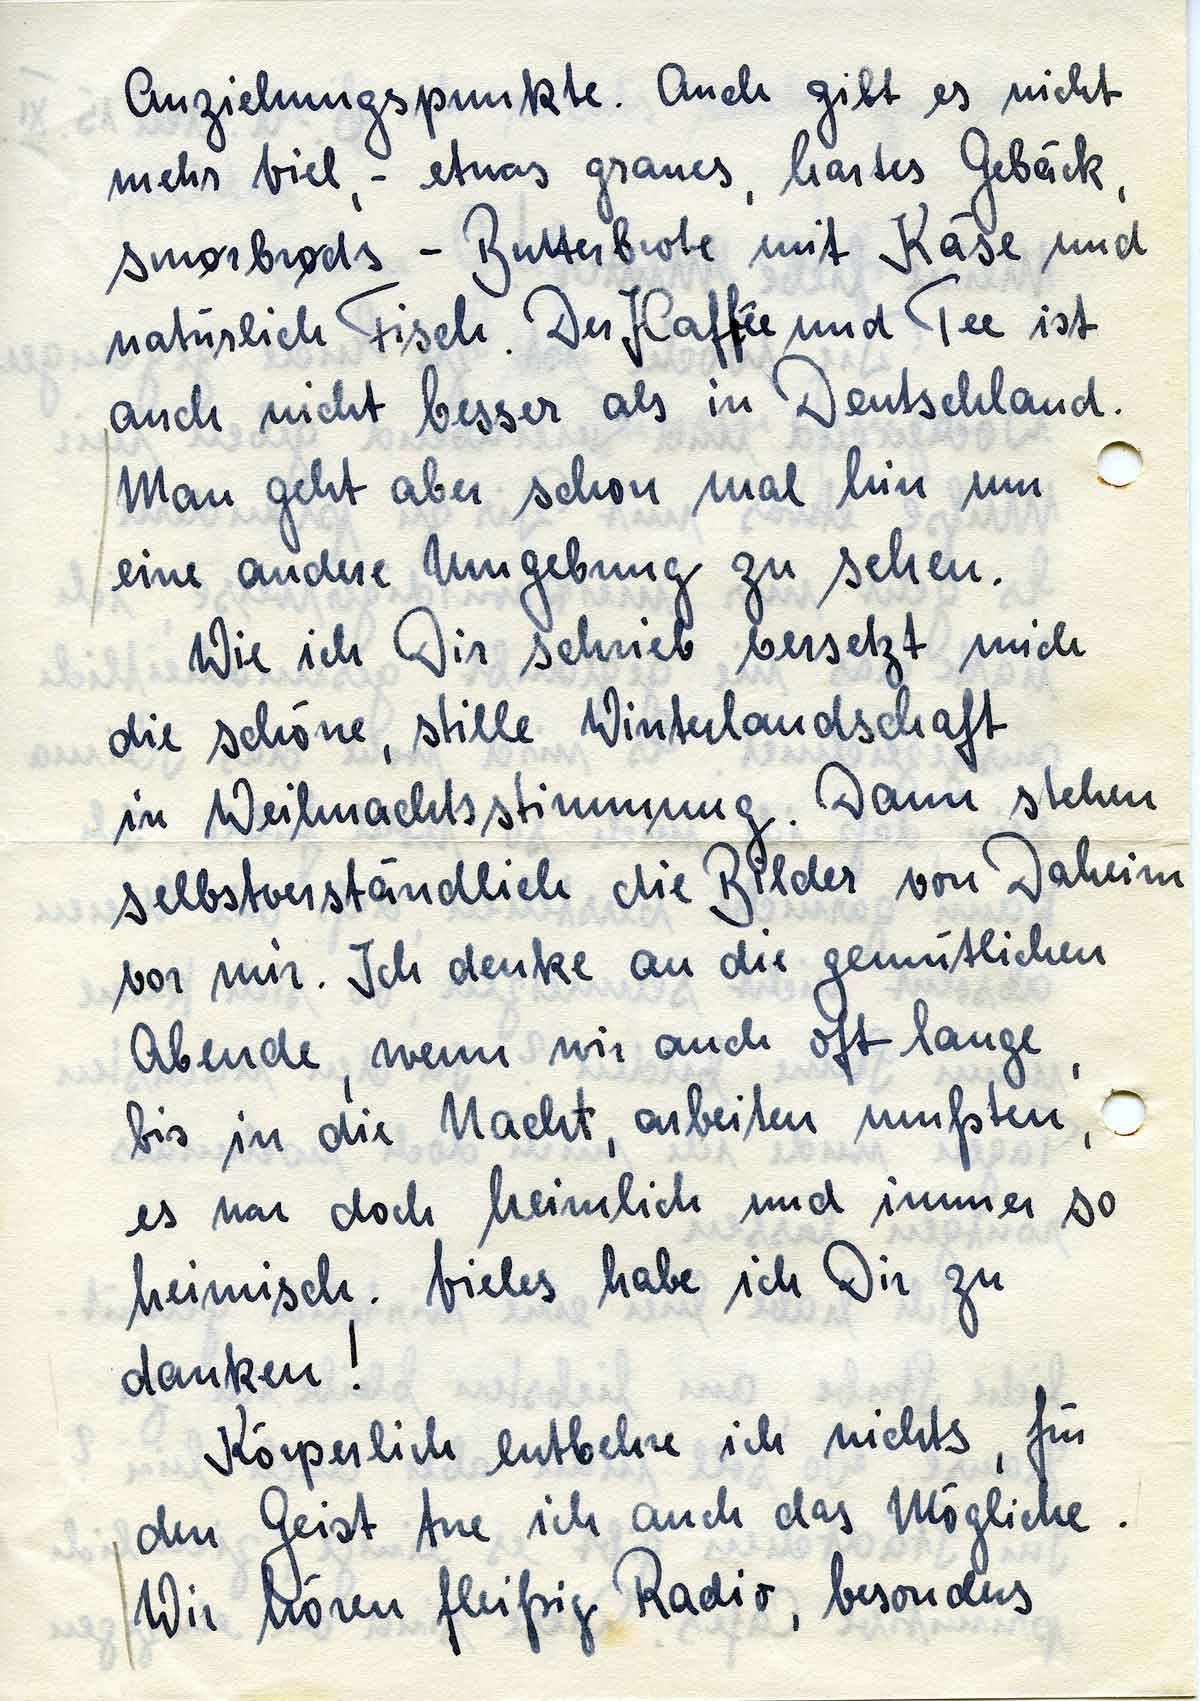 Anziehungspunkte. Auch gibt es nicht
mehr viel, - etwas graues, hartes Gebäck,
smørbrøds - Butterbrote mit Käse und
natürlich Fisch. Der Kaffee und Tee ist
auch nicht besser als in Deutschland.
Man geht aber schon mal hin um
eine andere Umgebung zu sehen.
Wie ich Dir schrieb versetzt mich
die schöne, stille Winterlandschaft
in Weihnachtsstimmung. Dann stehen
selbstverständlich die Bilder von Daheim
vor mir. Ich denke an die gemütlichen
Abende, wenn wir auch oft lange,
bis in die Nacht, arbeiten mußten,
es war doch heimlich und immer so
heimisch. Vieles habe ich Dir zu
danken!
Körperlich entbehre ich nichts, für
den Geist tue ich auch das Mögliche.
Wir hören fleißig Radio, besonders